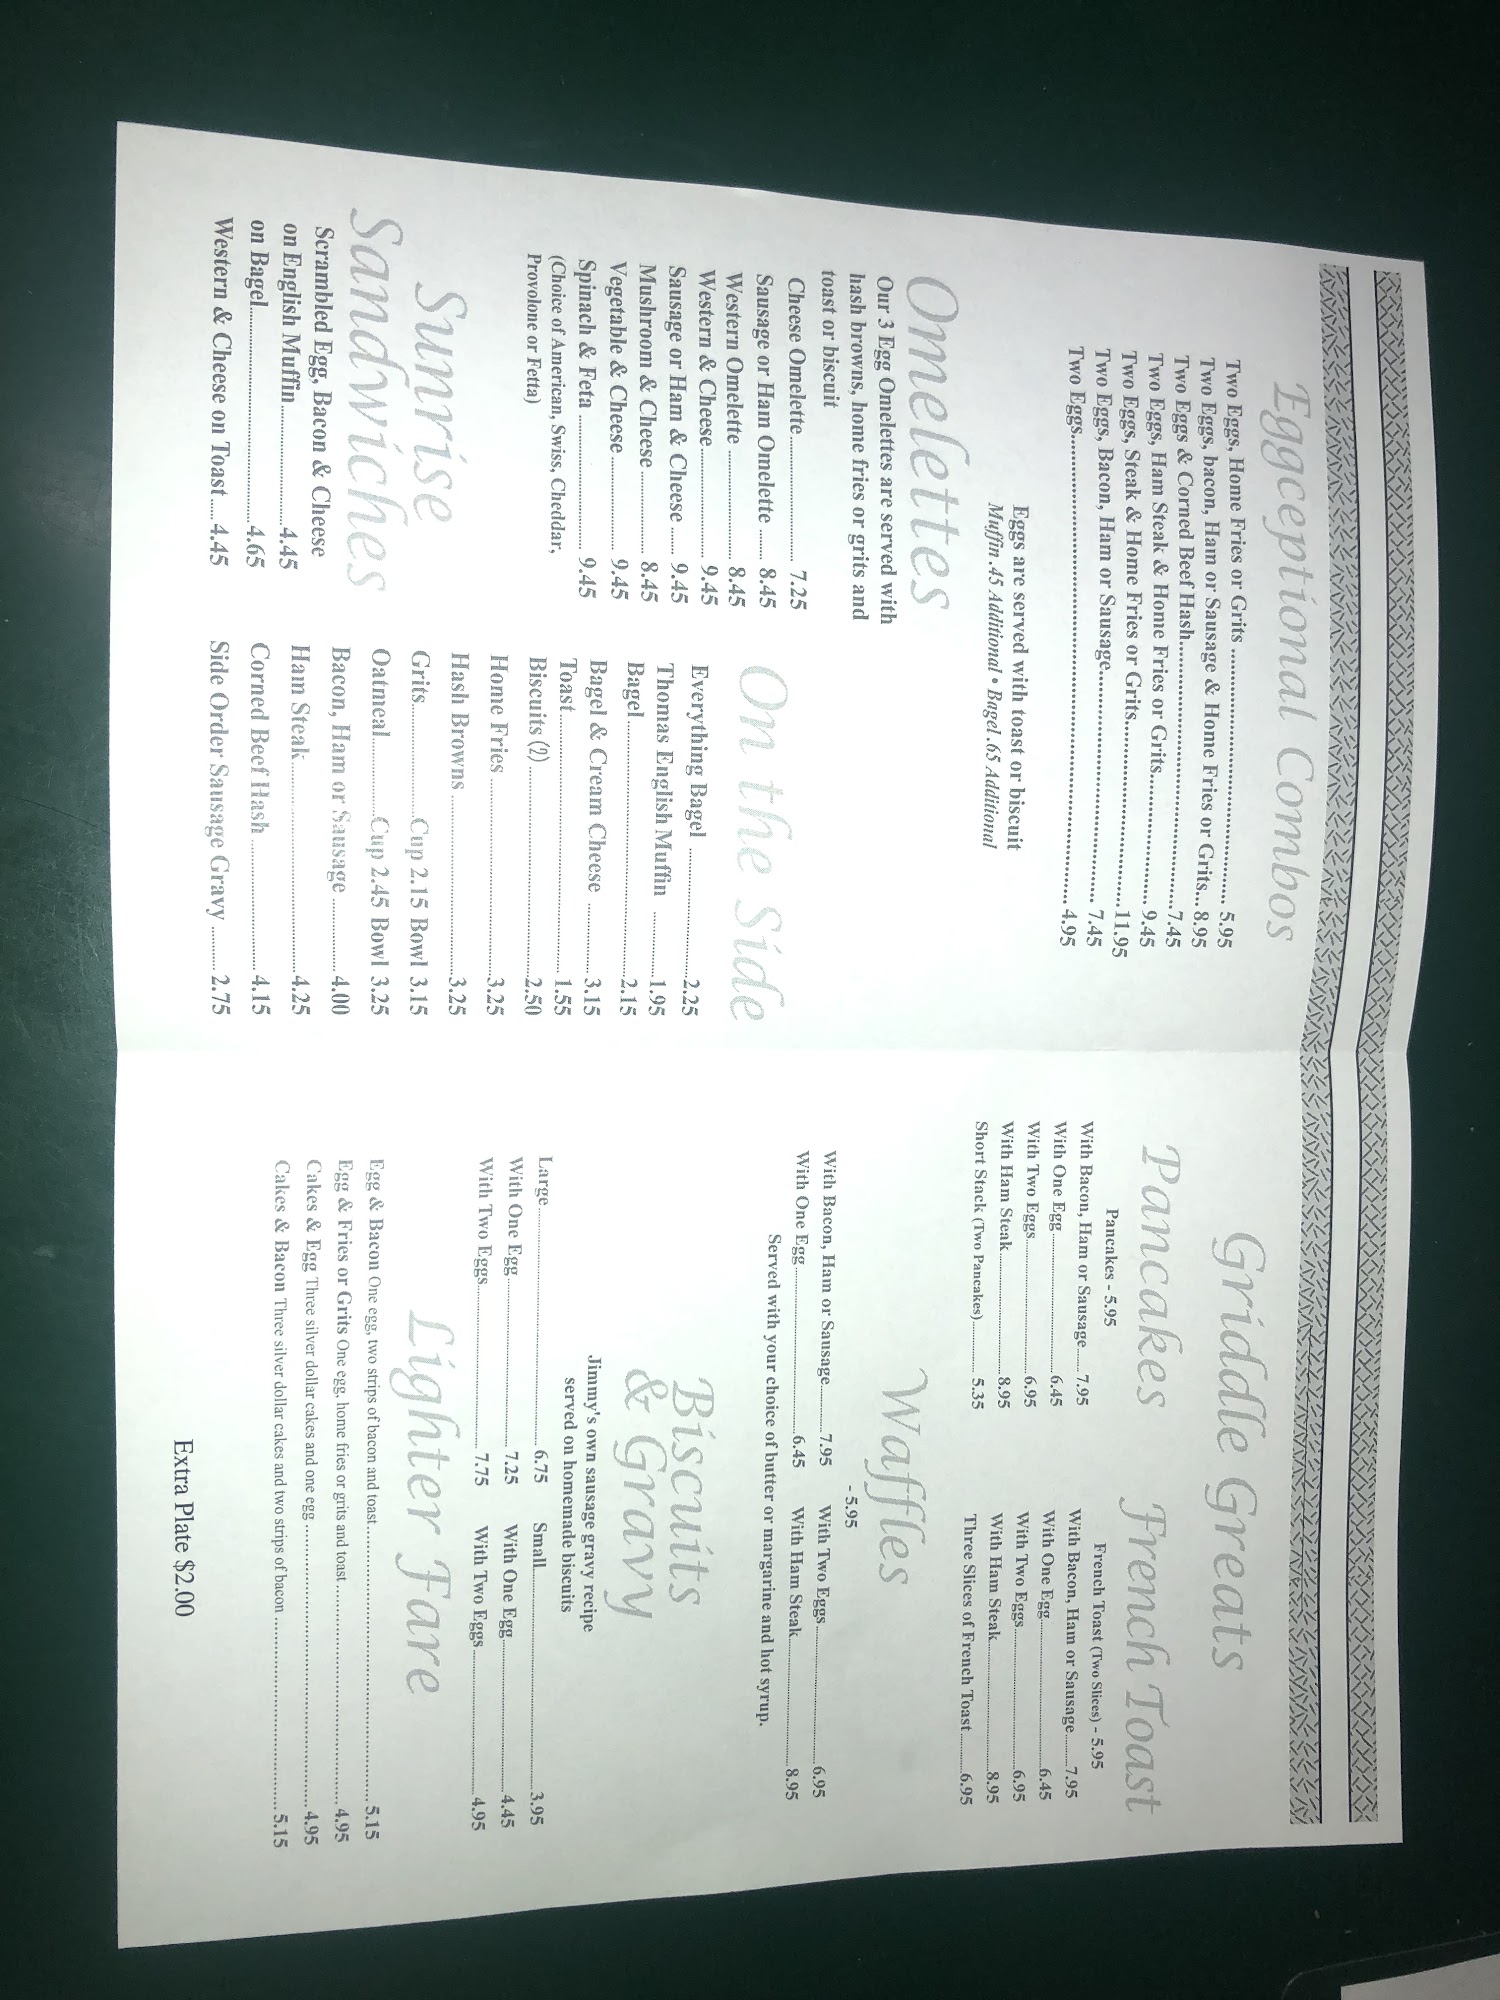 Eggceptional Combos
Two Eggs, Home Fries or Grits ........ 5.95
Two Eggs, bacon, Ham or Sausage & Home Fries or Grits... 8.95
Two Eggs & Corned Beef Hash........ 7.45
Two Eggs, Ham Steak & Home Fries or Grits........ 9.45
Two Eggs, Steak & Home Fries or Grits........ 11.95
Two Eggs, Bacon, Ham or Sausage........ 7.45
Two Eggs........ 4.95
Eggs are served with toast or biscuit
Muffin .45 Additional • Bagel .65 Additional
Omelettes
Our 3 Egg Omelettes are served with
hash browns, home fries or grits and
toast or biscuit
Cheese Omelette........ 7.25
Sausage or Ham Omelette ...... 8.45
Western Omelette ........ 8.45
Western & Cheese........ 9.45
Sausage or Ham & Cheese ...... 9.45
Mushroom & Cheese........ 8.45
Vegetable & Cheese ........ 9.45
Spinach & Feta ........ 9.45
(Choice of American, Swiss, Cheddar,
Provolone or Fetta)
Sunrise
Sandwiches
Scrambled Egg, Bacon & Cheese
on English Muffin........ 4.45
on Bagel........ 4.65
Western & Cheese on Toast.... 4.45
On the Side
Everything Bagel ........ 2.25
Thomas English Muffin ........ 1.95
Bagel........ 2.15
Bagel & Cream Cheese ........ 3.15
Toast........ 1.55
Biscuits (2) ........ 2.50
Home Fries ........ 3.25
Hash Browns ........ 3.25
Grits........ Cup 2.15 Bowl 3.15
Oatmeal........ Cup 2.45 Bowl 3.25
Bacon, Ham or Sausage ........ 4.00
Ham Steak........ 4.25
Corned Beef Hash ........ 4.15
Side Order Sausage Gravy ........ 2.75
Griddle Greats
Pancakes
Pancakes - 5.95
With Bacon, Ham or Sausage ...... 7.95
With One Egg........ 6.45
With Two Eggs........ 6.95
With Ham Steak........ 8.95
Short Stack (Two Pancakes)........ 5.35
French Toast
French Toast (Two Slices) - 5.95
With Bacon, Ham or Sausage...... 7.95
With One Egg........ 6.45
With Two Eggs........ 6.95
With Ham Steak........ 8.95
Three Slices of French Toast........ 6.95
Waffles
- 5.95
With Bacon, Ham or Sausage........ 7.95 With Two Eggs........ 6.95
With One Egg........ 6.45 With Ham Steak........ 8.95
Served with your choice of butter or margarine and hot syrup.
Biscuits
& Gravy
Jimmy's own sausage gravy recipe
served on homemade biscuits
Large ........ 6.75 Small........ 3.95
With One Egg ........ 7.25 With One Egg........ 4.45
With Two Eggs........ 7.75 With Two Eggs ........ 4.95
Lighter Fare
Egg & Bacon One egg, two strips of bacon and toast........ 5.15
Egg & Fries or Grits One egg, home fries or grits and toast ........ 4.95
Cakes & Egg Three silver dollar cakes and one egg ........ 4.95
Cakes & Bacon Three silver dollar cakes and two strips of bacon ........ 5.15
Extra Plate $2.00